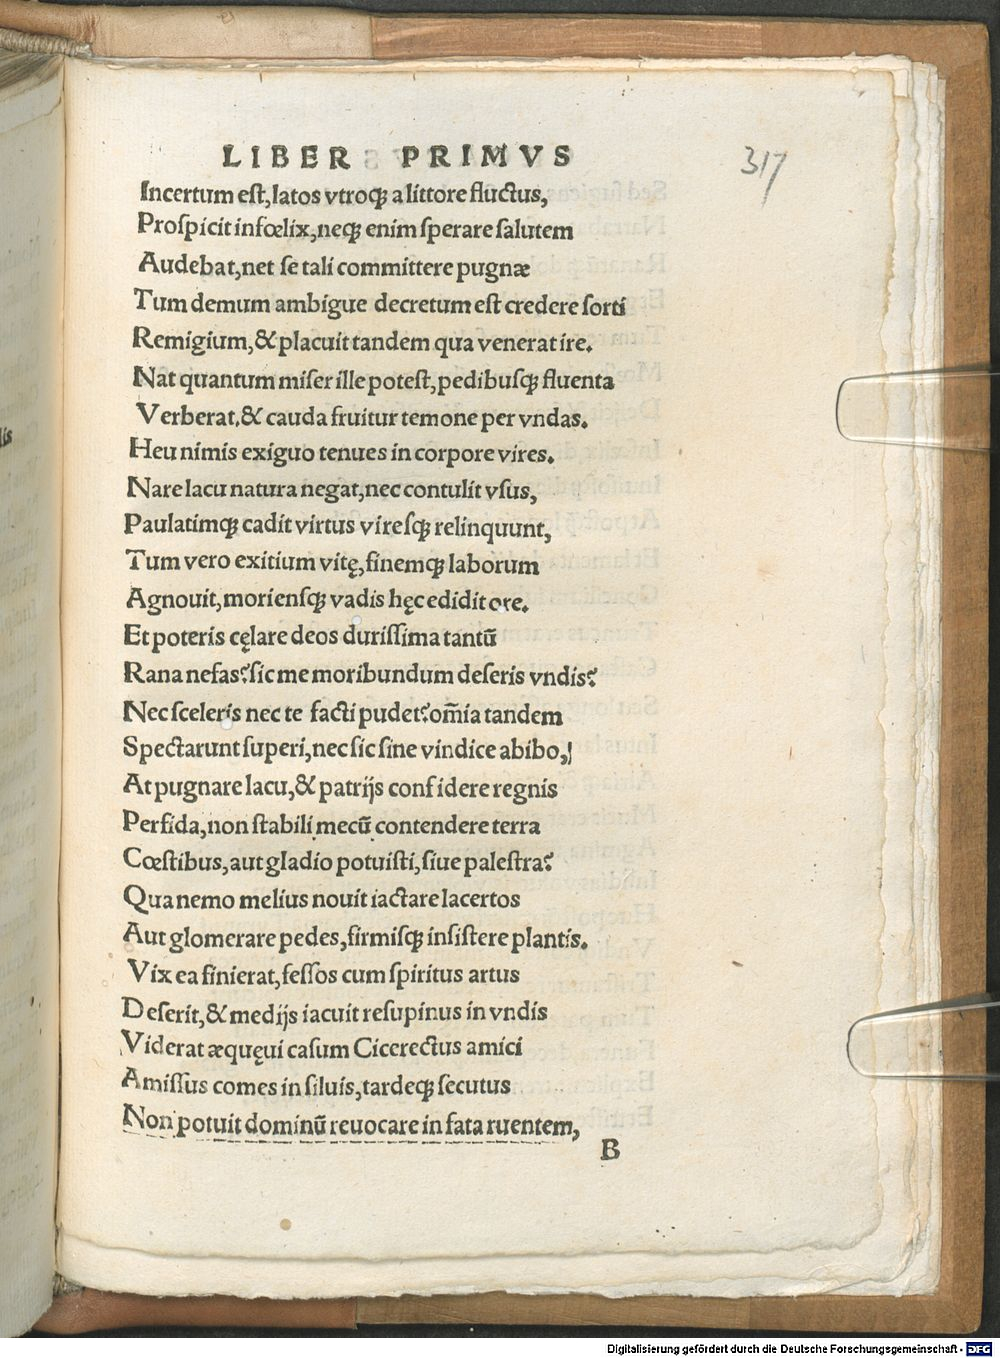 LIBER PRIMVS
317
Incertum est, latos vtroqꝫ a littore fluctus,
Prospicit infœlix, neqꝫ enim sperare salutem
Audebat, net se tali committere pugnæ
Tum demum ambigue decretum est credere sorti
Remigium, & placuit tandem qua venerat ire.
Nat quantum miser ille potest, pedibusqꝫ fluenta
Verberat, & cauda fruitur temone per vndas.
Heu nimis exiguo tenues in corpore vires.
Nare lacu natura negat, nec contulit vsus,
Paulatimqꝫ cadit virtus viresqꝫ relinquunt,
Tum vero exitium vitę, finemqꝫ laborum
Agnouit, moriensqꝫ vadis hęc edidit ore.
Et poteris cęlare deos durissima tantū
Rana nefas? sic me moribundum deseris vndis?
Nec sceleris nec te facti pudet? om̄ia tandem
Spectarunt superi, nec sic sine vindice abibo,
At pugnare lacu, & patrijs confidere regnis
Perfida, non stabili mecū contendere terra
Cœstibus, aut gladio potuisti, siue palestra?
Qua nemo melius nouit iactare lacertos
Aut glomerare pedes, firmisqꝫ insistere plantis.
Vix ea finierat, fessos cum spiritus artus
Deserit, & medijs iacuit resupinus in vndis
Viderat æquęui casum Cicerectus amici
Amissus comes in siluis, tardeqꝫ secutus
Non potuit dominū reuocare in fata ruentem,
B
lis
Digitalisierung gefördert durch die Deutsche Forschungsgemeinschaft - DFG